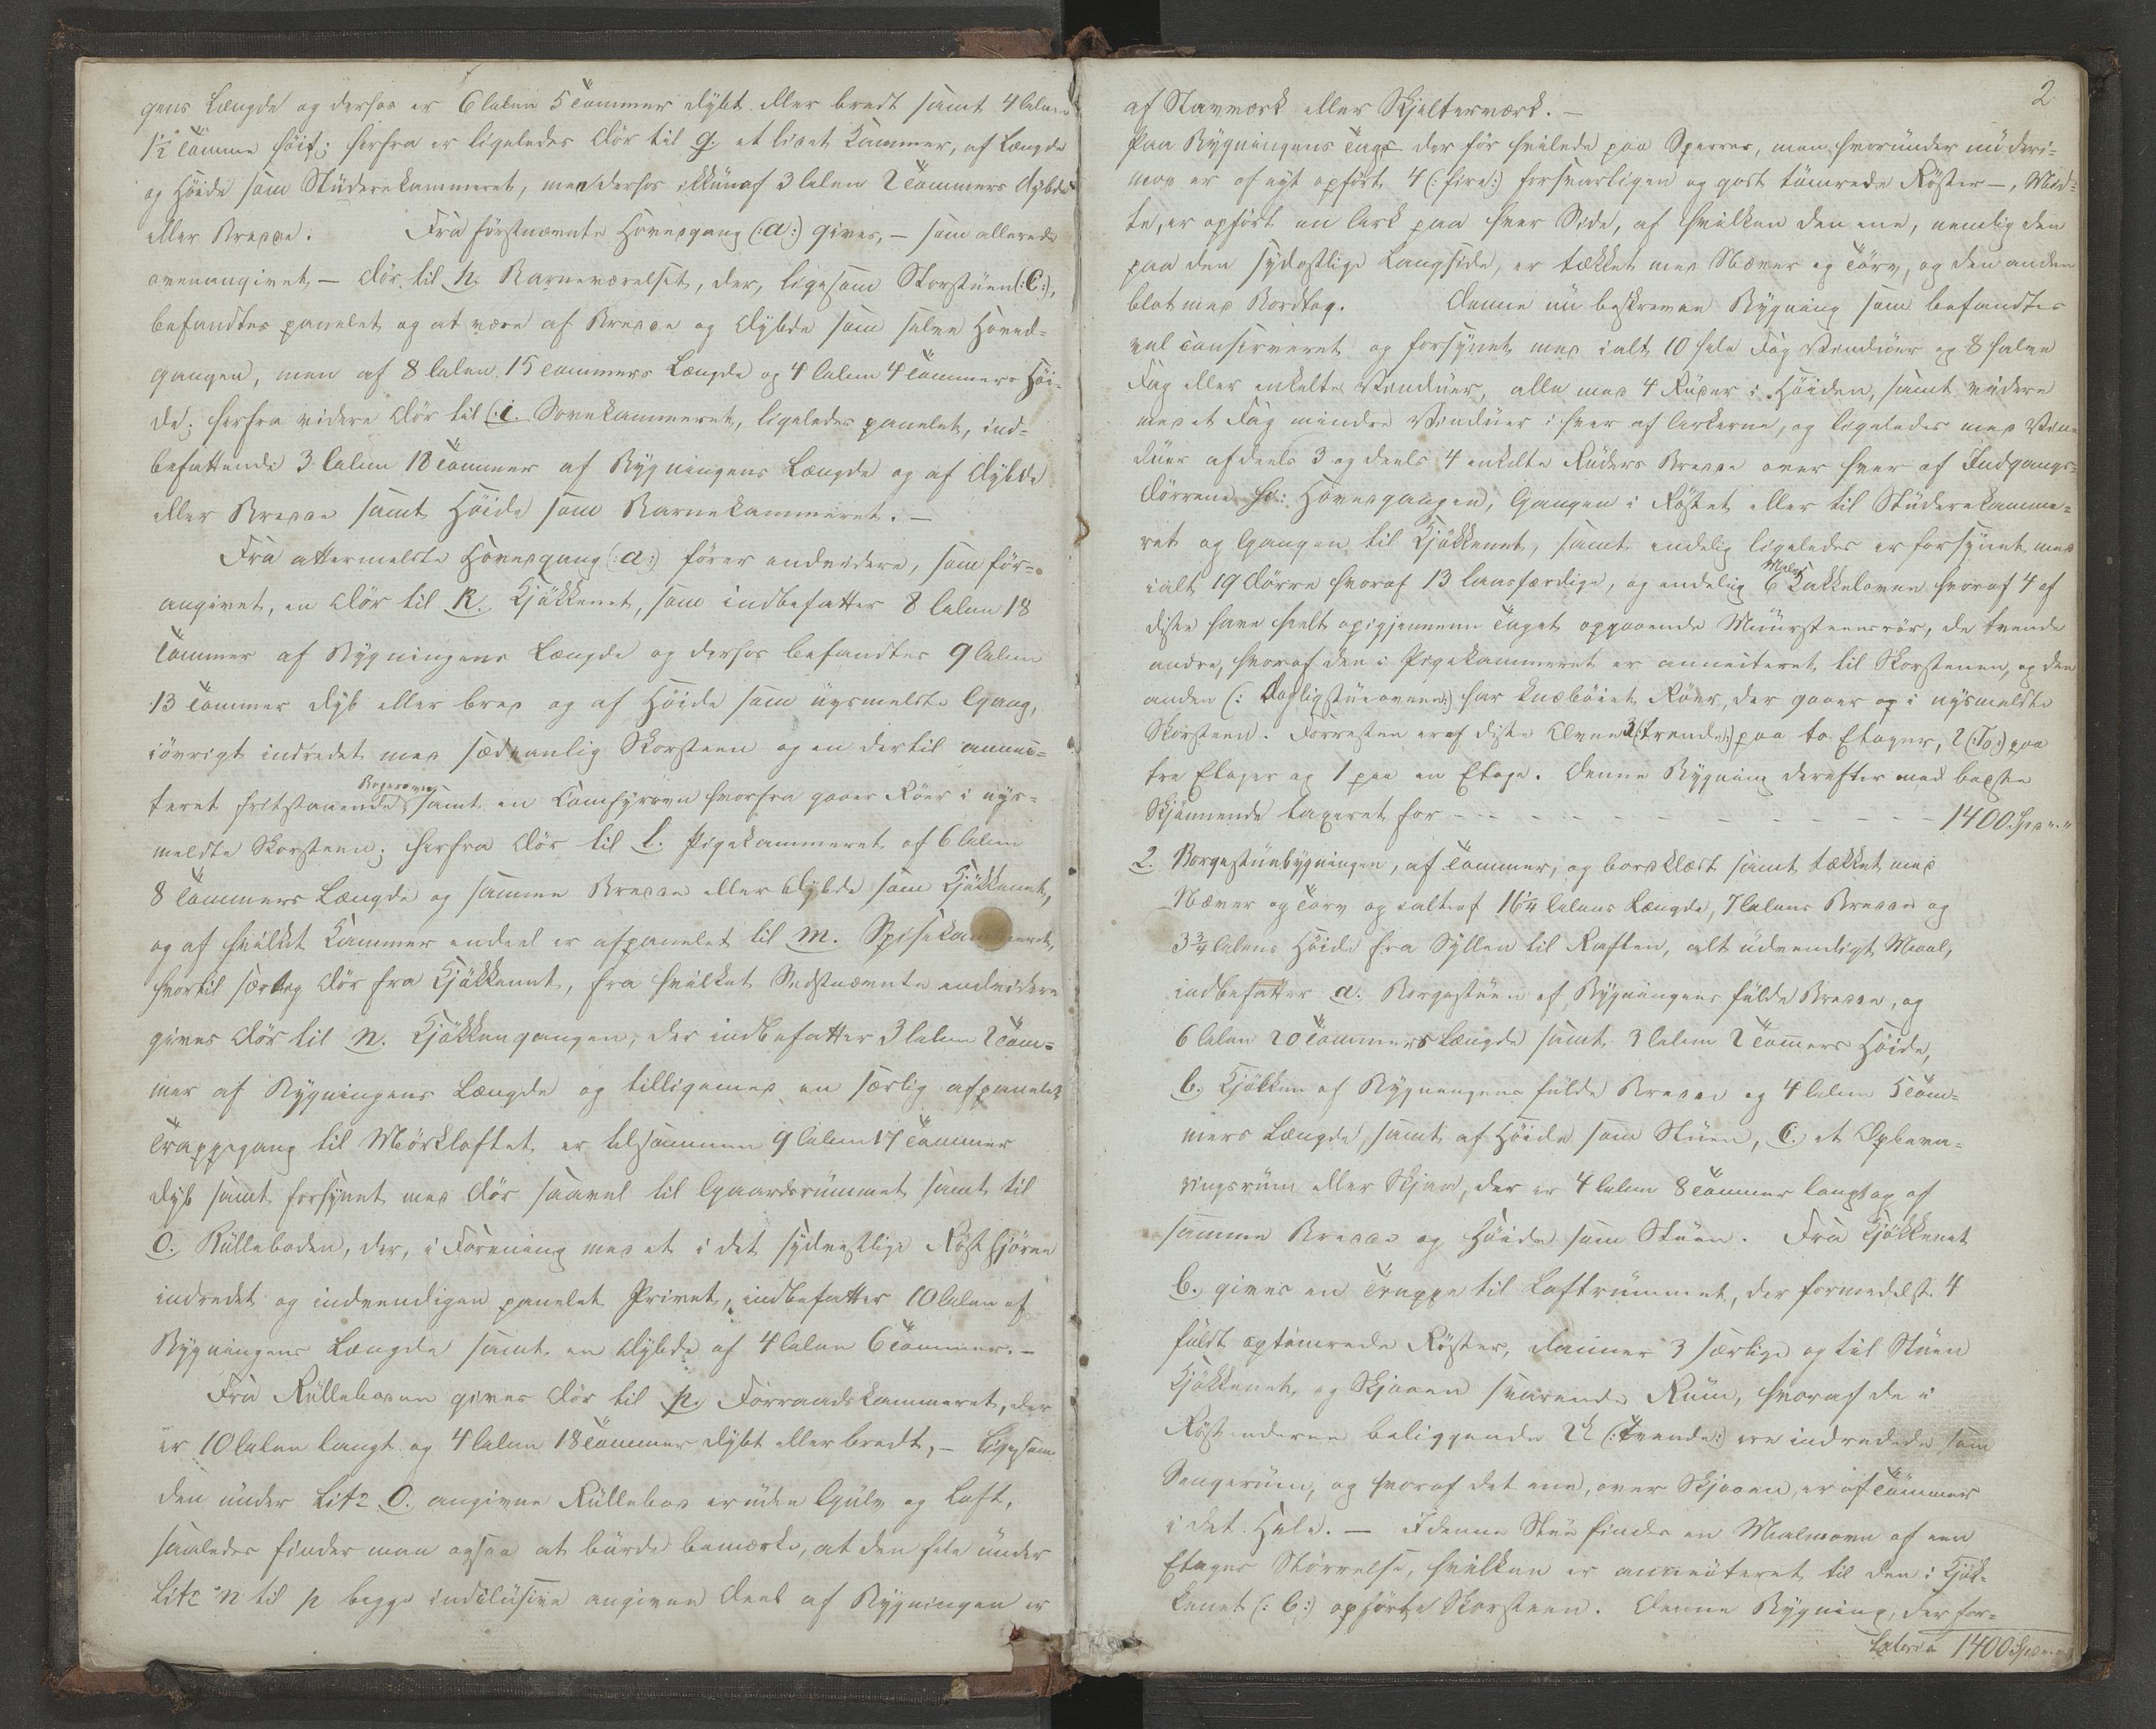 gens Længde og derhos er 6 Alen 5 Tommer dybt eller bredt samt 4 Alen
1½ Tomme høit; herfra er ligeledes Dør til g. et lidet Kammer, af Længde
og Høide som Studerekammeret, men derhos ikkun af 3 Alen 2 Tommers Dybde
eller Bredde. Fra førstnævnte Hovedgang (:a:) gives, – som allerede
ovenangivet – Dør til h. Barneværelset, der, ligesom Storstuen (:C:),
befandtes panelet og at være af Bredde og Dybde som selve Hoved-
gangen, men af 8 Alen 15 Tommers Længde og 4 Alen 4 Tommers Høi-
de; herfra videre Dør til (:i. Sovekammeret, ligeledes panelet, ind-
befattende 3 Alen 18 Tommer af Bygningens Længde og af Dybde
eller Bredde samt Høide som Barnekammeret. –
Fra attermeldte Hovedgang (:a:) fører endvidere, som før-
angivet, en Dør til K. Kjøkkenet, som indbefatter 8 Alen 18
Tommer af Bygningens Længde og derhos befandtes 9 Alen
13 Tommer dyb eller bred og af Høide som nysmeldte Gang,
iøvrigt indredet med sædvanlig Skorsteen og en dertil annec-
teret fritstaaende Bagerovn samt en Comfyrovn hvorfra gaaer Rør i nys-
meldte Skorsteen; herfra Dør til l. Pigekammeret af 6 Alen
8 Tommers Længde og samme Bredde eller Dybde som Kjøkkenet,
og af hvilket Kammer endeel er afpanelet til m. Spisekammeret,
hvortil særlig Dør fra Kjøkkenet, fra hvilket Sidstnævnte endvidere
gives Dør til n. Kjøkkengangen, der indbefatter 3 Alen 2 Tom-
mer af Bygningens Længde og tilligemed en særlig afpanelet
Trappegang til Mørkloftet er tilsammen 9 Alen 17 Tommer
dyb samt forsynet med Dør saavel til Gaardsrummet samt til
O. Rulleboden, der, i Forening med et i det sydvestlige Røst hjørne
indredet og indvendigen panelet Privet, indbefatter 10 Alen af
Bygningens Længde samt en Dybde af 4 Alen 6 Tommer. –
Fra Rulleboden gives Dør til p. Forraadskammeret, der
er 10 Alen langt og 4 Alen 18 Tommer dybt eller bredt, – Ligesom
den under Litr O. angivne Rullebod er uden Gulv og Loft,
saaledes findes man ogsaa at burde bemærke, at den hele under
Litr n til p begge inclusive angivne Deel af Bygningen er
2
af Stavværk eller Skjelterværk. –
Paa Bygningens Tage der før hvilede paa Sperrer, men hvorunder nu deri-
mod er af nyt opført 4 (:fire:) forsvarligen og godt tømrede Røster –, Mid-
te, er opført en Ark paa hver Side, af hvilken den ene, nemlig den
paa den sydostlige Langside, er tækket med Næver og Tørv, og den anden
blot med Bordtag. Denne nu beskrevne Bygning som befandtes
vel conserveret og forsynet med ialt 10 hele Fag Vinduer og 8 halve
Fag eller enkelte Vinduer, alle med 4 Ruder i Høiden, samt videre
med et Fag mindre Vinduer i hver af Arkerne, og ligeledes med Vin-
duer af deels 3 og deels 4 enkelte Ruders Bredde over hver af Indgangs-
dørrene til: Hovedgangen, Gangen i Røstet eller til Studerekamme-
ret og Gangen til Kjøkkenet, samt endelig ligeledes er forsynet med
ialt 19 Dørre hvoraf 13 laasfærdige, og endelig 6 Malm Kakkelovne hvoraf 4 af
disse have heelt opigjennem Taget opgaaende Muursteensrør, de tvende
andre, hvoraf den i Pigekammeret er annecteret til Skorstenen, og den
anden (: Dagligstueovnen:) har knæbøiet Røer, der gaaer op i nysmeldte
Skorsteen. Forresten ere af disse Ovne 3 (:trende:) paa to Etager, 2 (:To:) paa
tre Etager og 1 paa en Etage. Denne Bygning derefter med bedste
Skjønnende taxeret for - - - - - - - - - - 1400 Spd „ „
2. Borgestuebygningen, af Tømmer, og bordklædt samt tækket med
Næver og Tørv og ialt af 16¼ Alens Længde, 7 Alens Bredde og
3¾ Alens Høide fra Syllen til Raften, alt udvendigt Maal,
indbefatter a. Borgestuen af Bygningens fulde Bredde, og
6 Alen 20 Tommers Længde samt 3 Alen 2 Tommers Høide,
b. Kjøkken af Bygningens fulde Bredde og 4 Alen 5 Tom-
mers Længde, samt af Høide som Stuen, C. et Opbeva-
ringsrum eller Skjaa, der er 4 Alen 8 Tommer langt og af
samme Bredde og Høide som Stuen. Fra Kjøkkenet
b. gives en Trappe til Loftrummet, der formedelst 4
fuldt optømrede Røster, danner 3 særlige og til Stuen
Kjøkkenet og Skjaaen svarende Rum, hvoraf de i
Røstenderne beliggende 2de (:tvende:) ere indredede som
Sengerum, og hvoraf det ene, over Skjaaen, er af Tømmer
i det Hele. – I denne Stue findes en Malmovn af een
Etages Størrelse, hvilken er annecteret til den i Kjøk-
kenet (:b:) opførte Skorsteen. Denne Bygning, der for-
Lateris 1400 Spd „ „